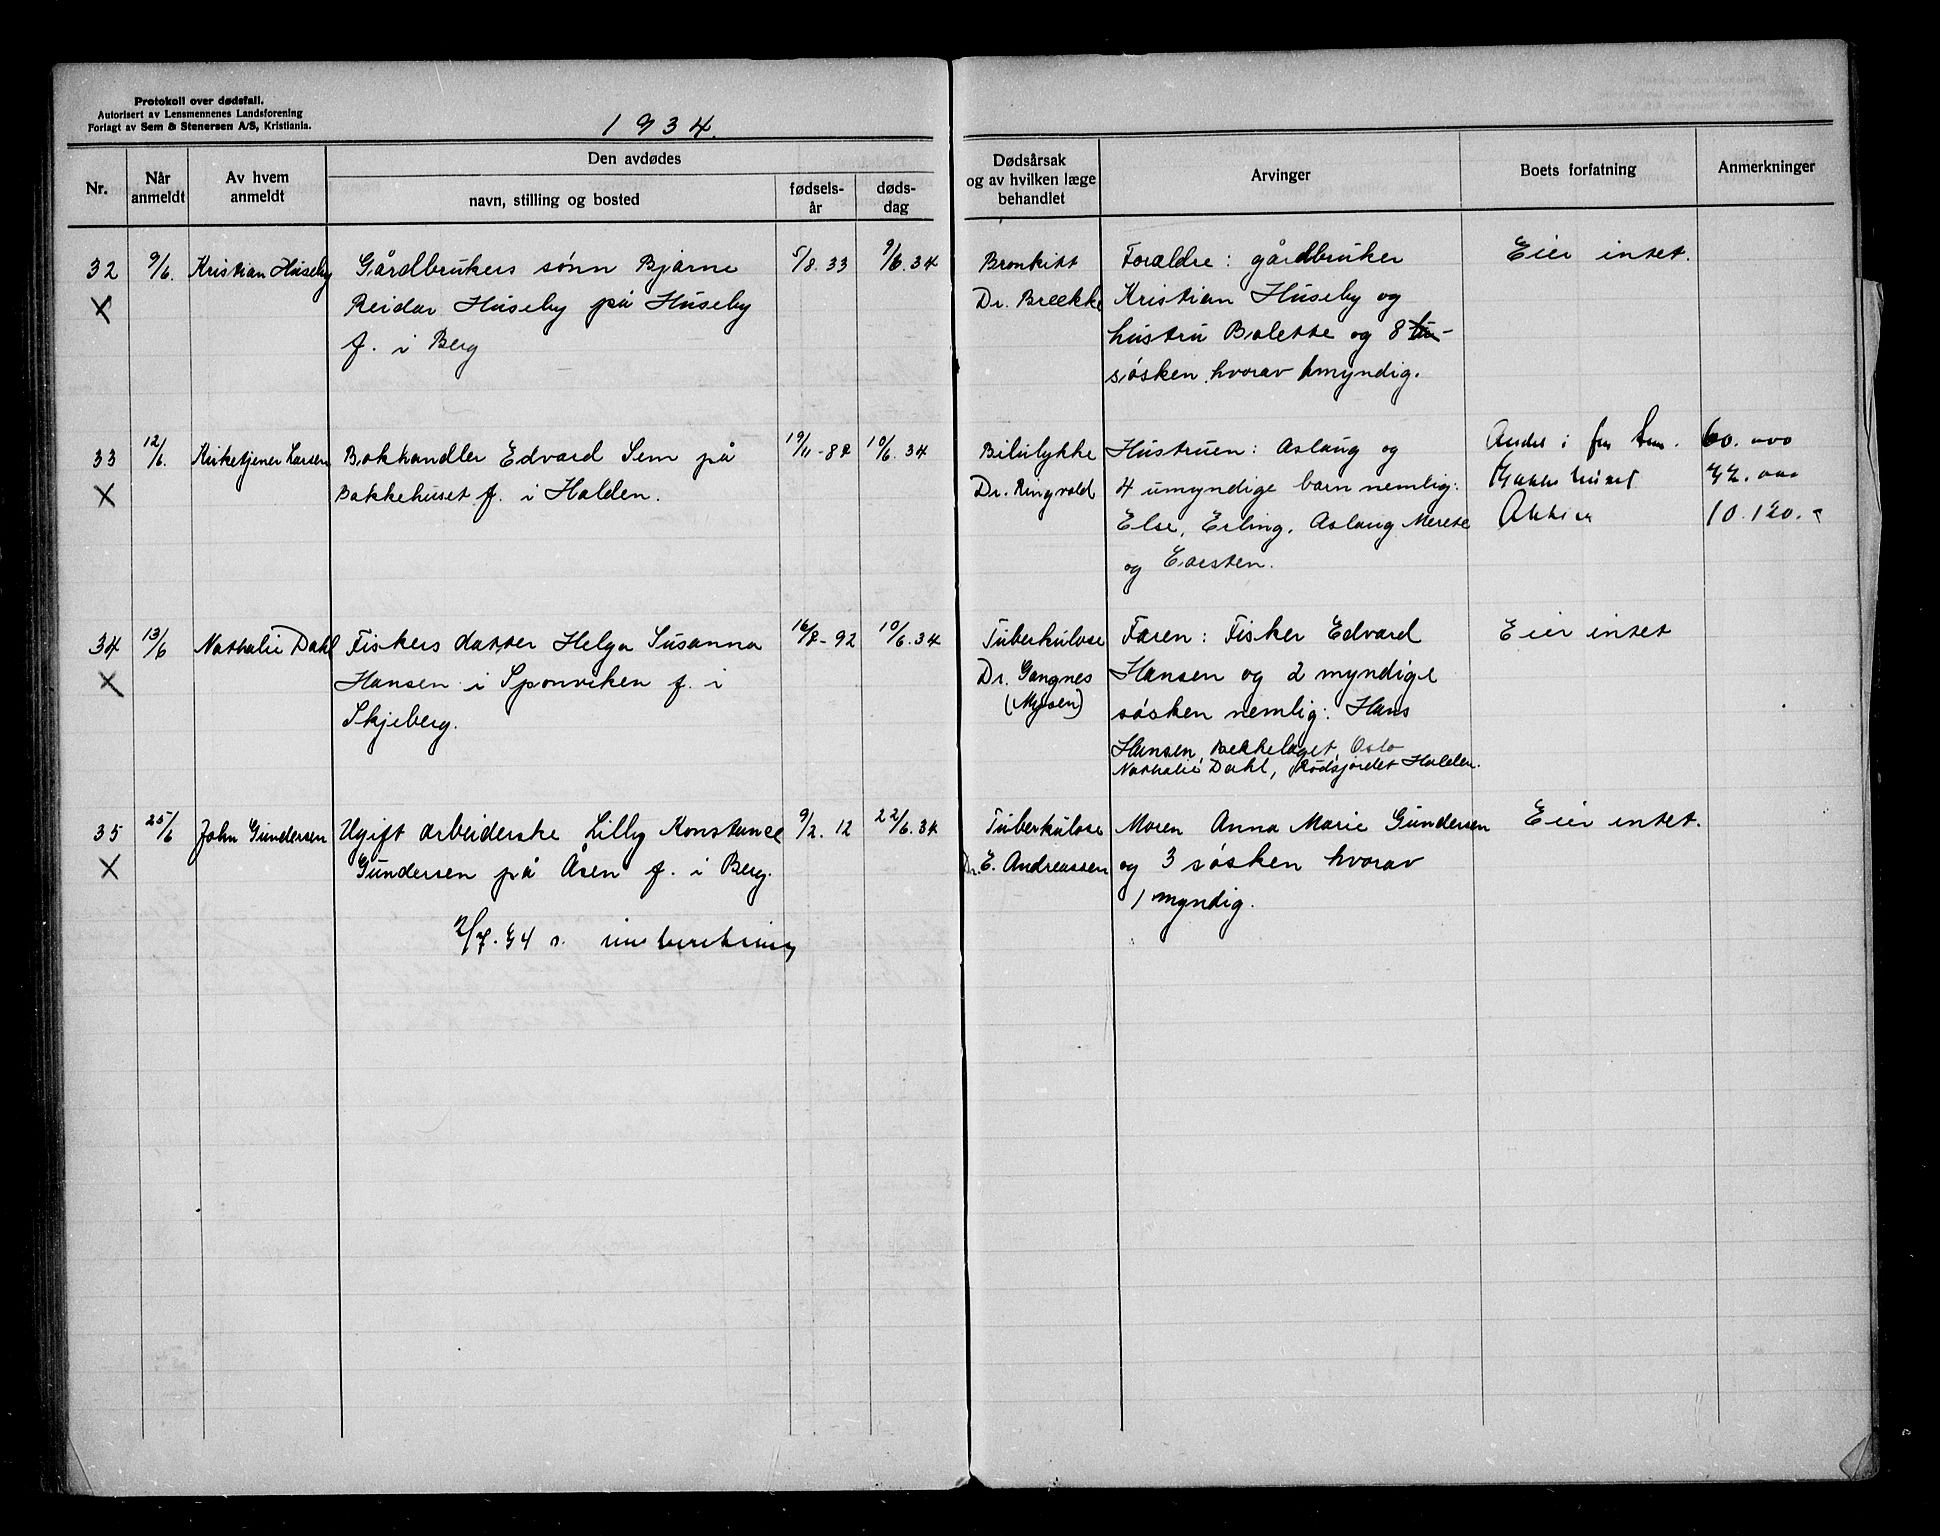 Protokoll over dødsfall.
Autorisert av Lensmennenes Landsforening
Forlagt av Sem & Stenersen A/S, Kristiania.
1934.
Nr.
Når anmeldt
Av hvem anmeldt
Den avdødes
navn, stilling og bosted
fødsels-år
døds-dag
Dødsårsak
og av hvilken læge
behandlet
Arvinger
Boets forfatning
Anmerkninger
32 9/6. Kristian Huseby Gårdbrukers sønn Bjarne 5/8.33 9/6.34 Bronkitt Forældre: gårdbruker Eier intet.
X Reidar Huseby på Huseby Dr. Brække Kristian Huseby og
f. i Berg hustru Bolette og 8
søsken hvorav 1 myndig.
33 12/6. Kirketjener Larsen Bokhandler Edvard Sem på 19/11-84 10/6.34 Bilulykke Hustruen: Aslaug og Andel i 60.000
X Bakkehuset f. i Halden. Dr. Ringvold 4 umyndige barn nemlig: Bakkehuset 42.000
Else, Erling, Aslaug Merete Aktier 10.120.-
og Carsten.
34 13/6 Nathalie Dahl Fiskers datter Helga Susanna 16/8-92 10/6.34 Tuberkulose Faren: Fisker Edvard Eier intet
X Hansen i Sponviken f. i Dr. Gangnes Hansen og 2 myndige
Skjeberg. (Mysen) søsken nemlig: Hans
Hansen, Bekkelaget, Oslo
Nathalie Dahl, Rødsjordet Halden.
35 25/6 John Gundersen Ugift arbeiderske Lilly Konstance 9/2.12 22/6.34 Tuberkulose Moren Anna Marie Gundersen Eier intet.
X Gundersen på Åsen f. i Berg. Dr. E. Andreassen og 3 søsken hvorav
1 myndig.
2/7.34 s. innberetning